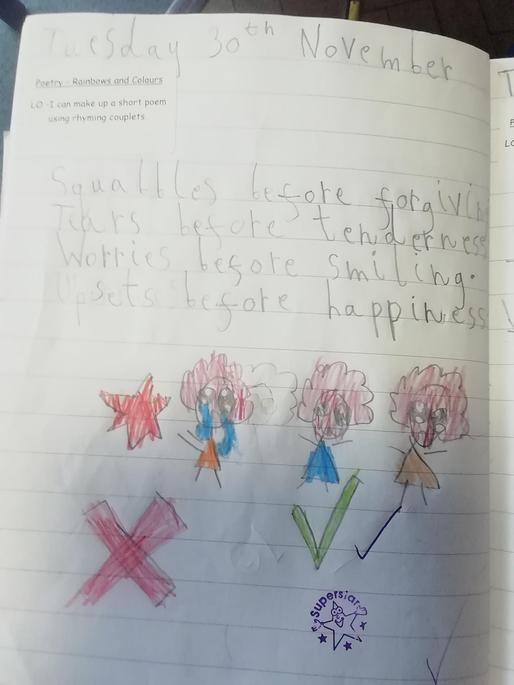 Tuesday 30th November
Poetry - Rainbows and Colours
LO -I can make up a short poem
using rhyming couplets
Squabbles before forgivin
Tears before tenderness
Worries before smiling.
Upsets before happiness
Superstar